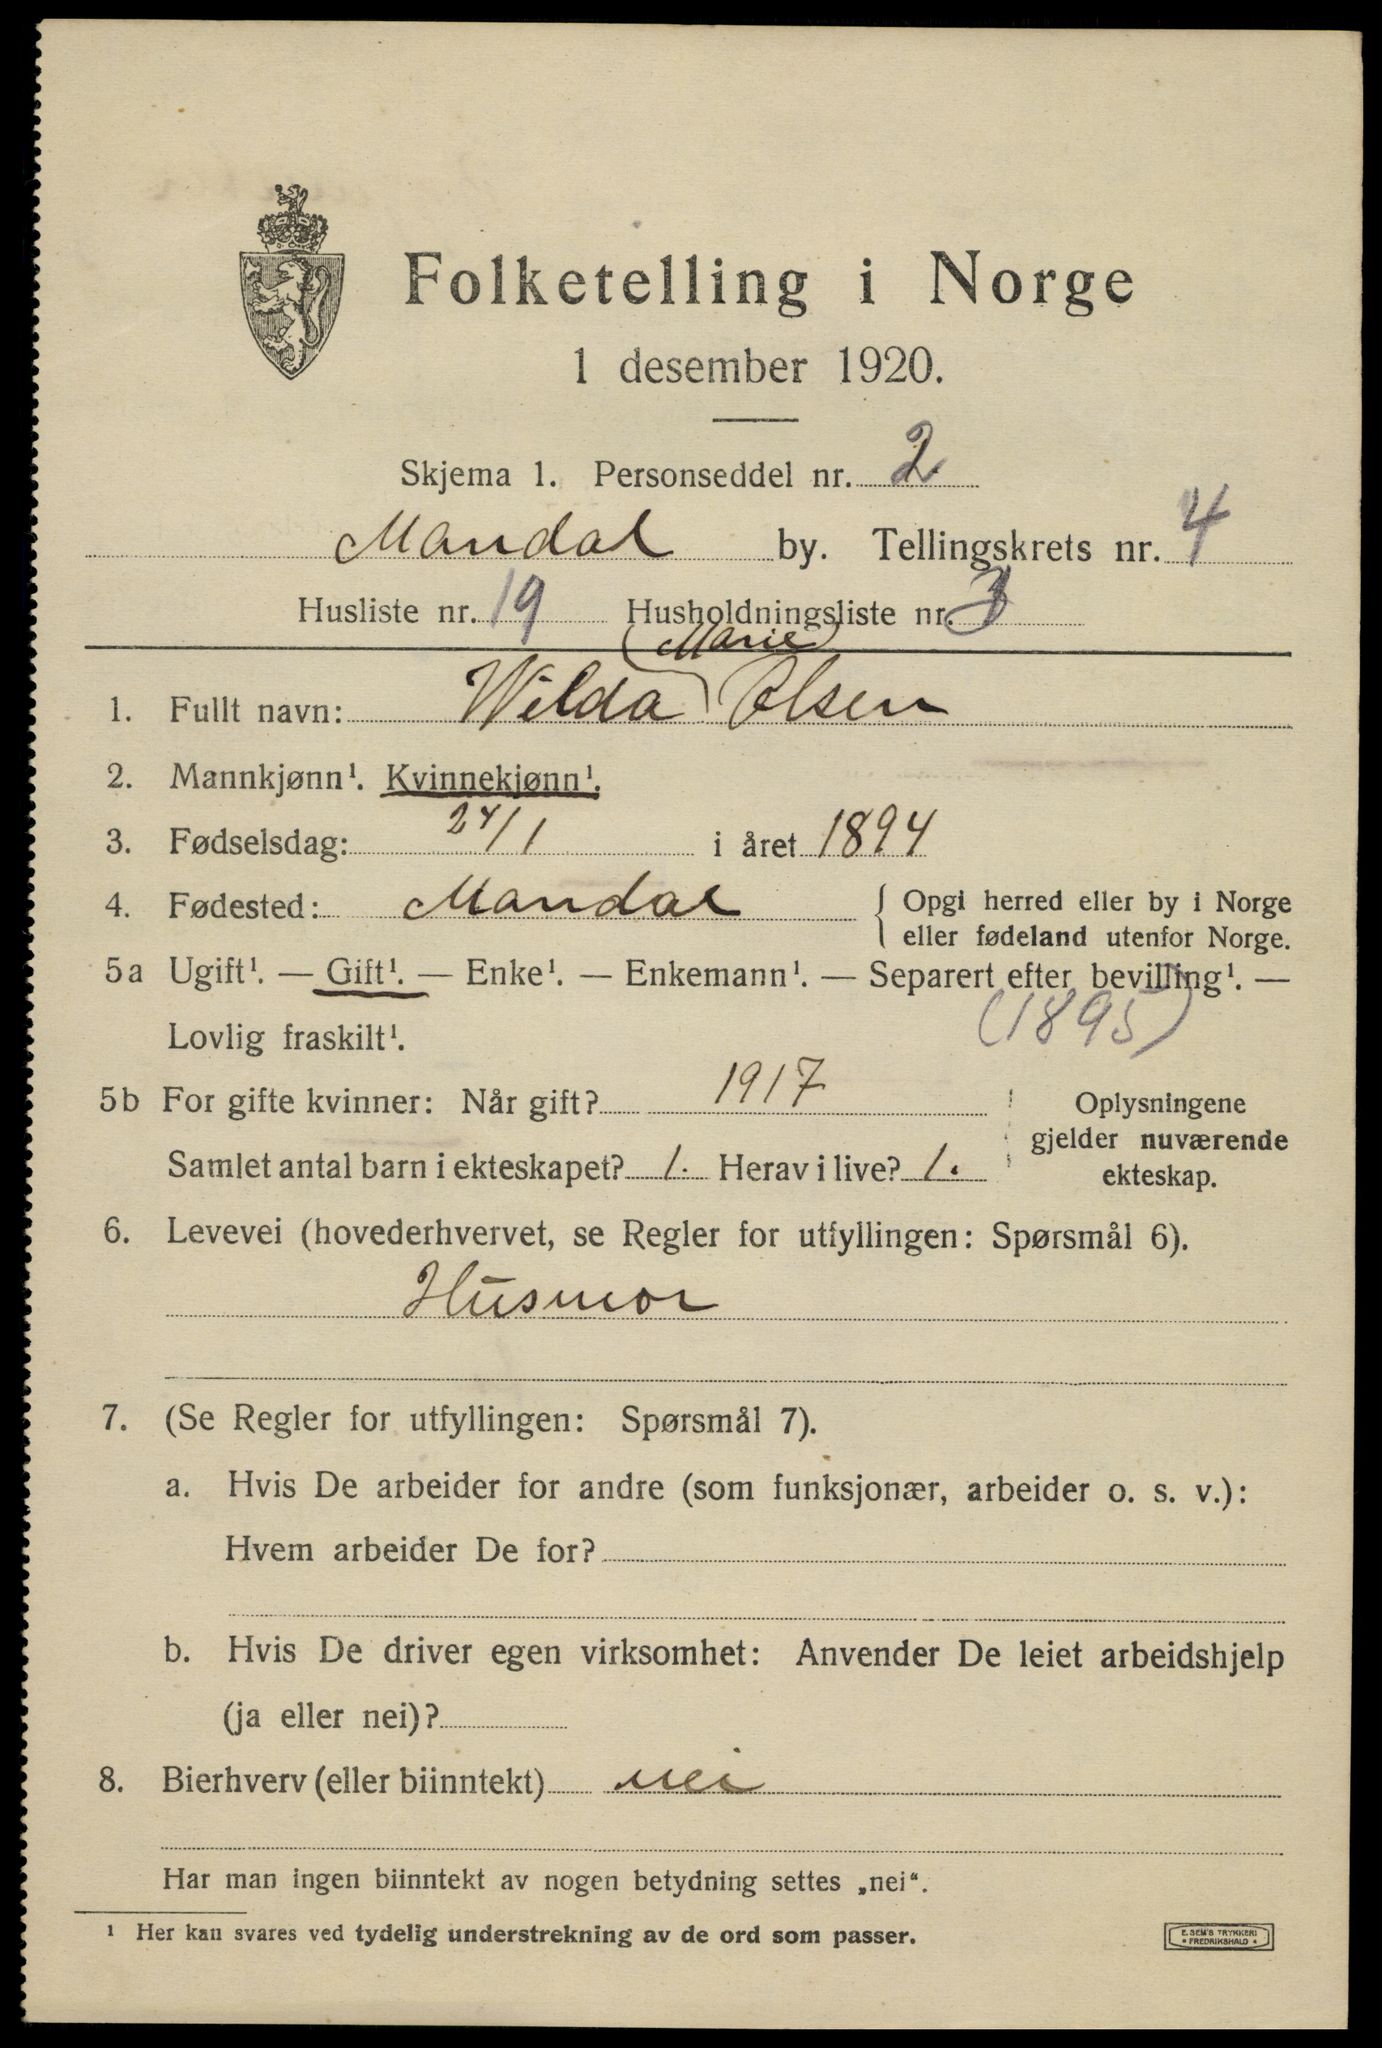 Folketelling i Norge
1 desember 1920.
Skjema 1. Personseddel nr. 2
Mandal by. Tellingskrets nr. 4
Husliste nr. 19 Husholdningsliste nr. 3
(Marie)
1. Fullt navn: Wilda Olsen
2. Mannkjønn¹. Kvinnekjønn¹.
3. Fødselsdag: 24/1 i året 1894
4. Fødested: Mandal { Opgi herred eller by i Norge
eller fødeland utenfor Norge.
5a Ugift¹. — Gift¹. — Enke¹. — Enkemann¹. — Separert efter bevilling¹. —
Lovlig fraskilt¹. (1895)
5b For gifte kvinner: Når gift? 1917 Oplysningene
gjelder nuværende
Samlet antal barn i ekteskapet? 1. Herav i live? 1. ekteskap.
6. Levevei (hovederhvervet, se Regler for utfyllingen: Spørsmål 6).
Husmor
7. (Se Regler for utfyllingen: Spørsmål 7).
a. Hvis De arbeider for andre (som funksjonær, arbeider o. s. v.):
Hvem arbeider De for?
b. Hvis De driver egen virksomhet: Anvender De leiet arbeidshjelp
(ja eller nei)?
8. Bierhverv (eller biinntekt) nei
Har man ingen biinntekt av nogen betydning settes „nei“.
¹ Her kan svares ved tydelig understrekning av de ord som passer.
E. SEM'S TRYKKERI
• FREDRIKSHALD •